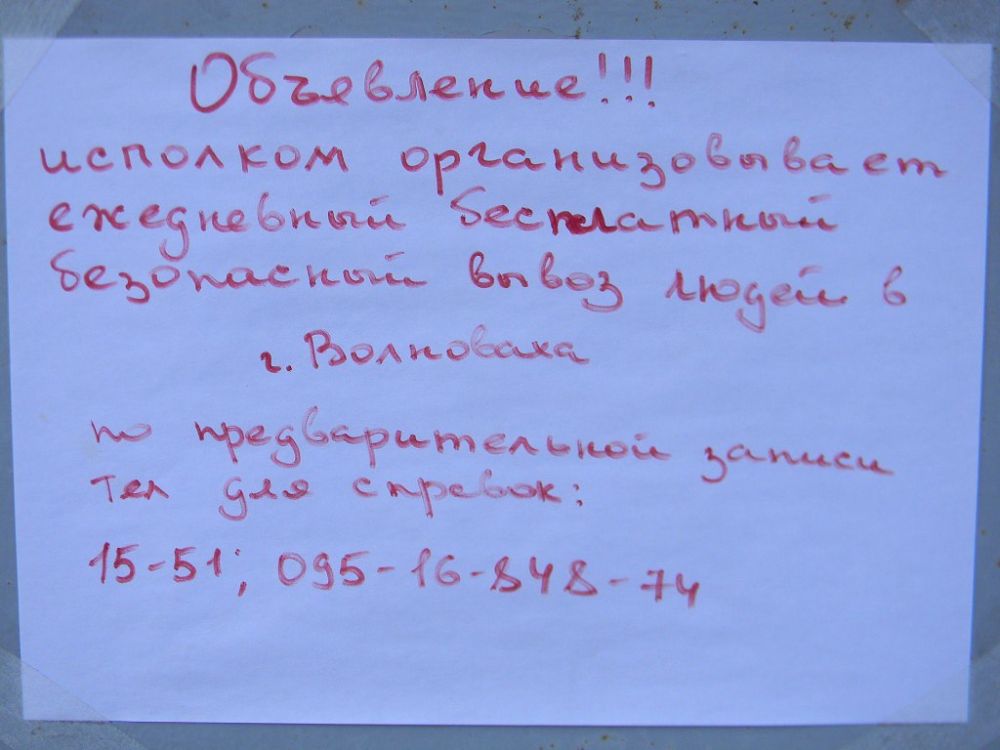 Объявление!!!
исполком организовывает
ежедневный бесплатный
безопасный вывоз людей в
г. Волноваха
по предварительной записи
тел для справок:
15-51; 095-16-848-74